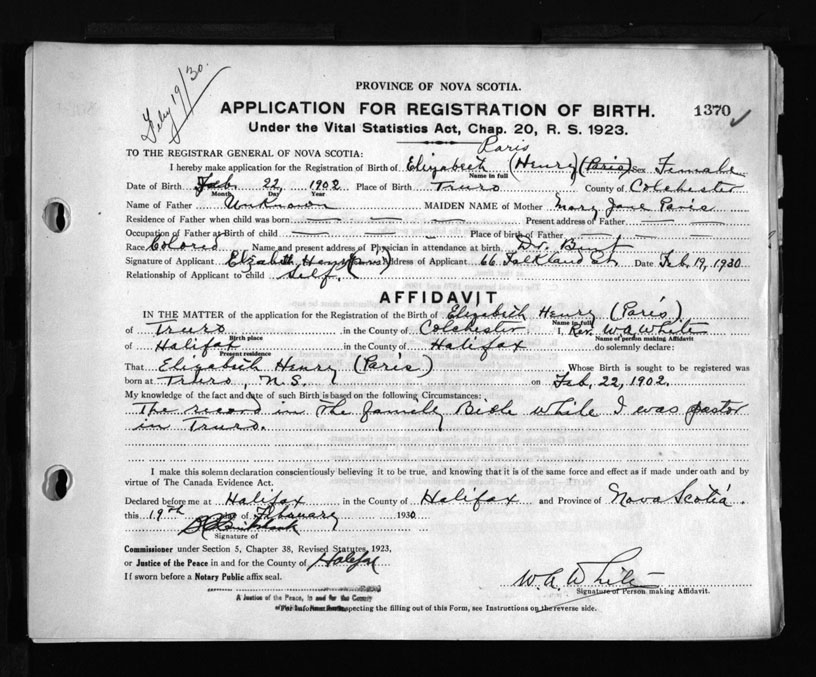 Feby 19/30.
PROVINCE OF NOVA SCOTIA.
APPLICATION FOR REGISTRATION OF BIRTH. 1370
Under the Vital Statistics Act, Chap. 20, R. S. 1923.
Paris
TO THE REGISTRAR GENERAL OF NOVA SCOTIA:
I hereby make application for the Registration of Birth of Elizabeth (Henry) (Paris) Sex Female
Name in full
Date of Birth Feb. 22, 1902 Place of Birth Truro County of Colchester
Month Day Year
Name of Father Unknown MAIDEN NAME of Mother Mary Jane Paris
Residence of Father when child was born Present address of Father
Occupation of Father at Birth of child Place of birth of Father
Race Colored Name and present address of Physician in attendance at birth Dr.
Signature of Applicant Elizabeth Henry (Paris) Address of Applicant 66 Falkland St. Date Feb. 19, 1930
Relationship of Applicant to child Self.
AFFIDAVIT
IN THE MATTER of the application for the Registration of the Birth of Elizabeth Henry (Paris)
Name in full
of Truro in the County of Colchester I, Rev. W A White
Birth place Name of person making Affidavit
of Halifax in the County of Halifax do solemnly declare:
Present residence
That Elizabeth Henry (Paris) Whose Birth is sought to be registered was
born at Truro, N.S. on Feb. 22, 1902.
My knowledge of the fact and date of such Birth is based on the following Circumstances:
The record in the family Bible while I was pastor
in Truro.
I make this solemn declaration conscientiously believing it to be true, and knowing that it is of the same force and effect as if made under oath and by
virtue of The Canada Evidence Act.
Declared before me at Halifax in the County of Halifax and Province of Nova Scotia.
this 19th day of February 1930
Signature of
Commissioner under Section 5, Chapter 38, Revised Statutes, 1923,
or Justice of the Peace in and for the County of Halifax
If sworn before a Notary Public affix seal.
W. A. White
Signature of Person making Affidavit.
A Justice of the Peace, in and for the County
For Information respecting the filling out of this Form, see Instructions on the reverse side.